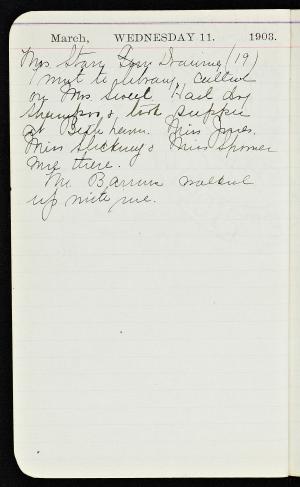 March, WEDNESDAY 11. 1903.
Mrs. Starr Drawing (19)
I went to library, called
on Mrs. Sweet. Had dry
shampoo & took supper
at Miss Jones.
Miss Stickney & Miss Spooner
were there.
Mr. Barrum walked
up with me.